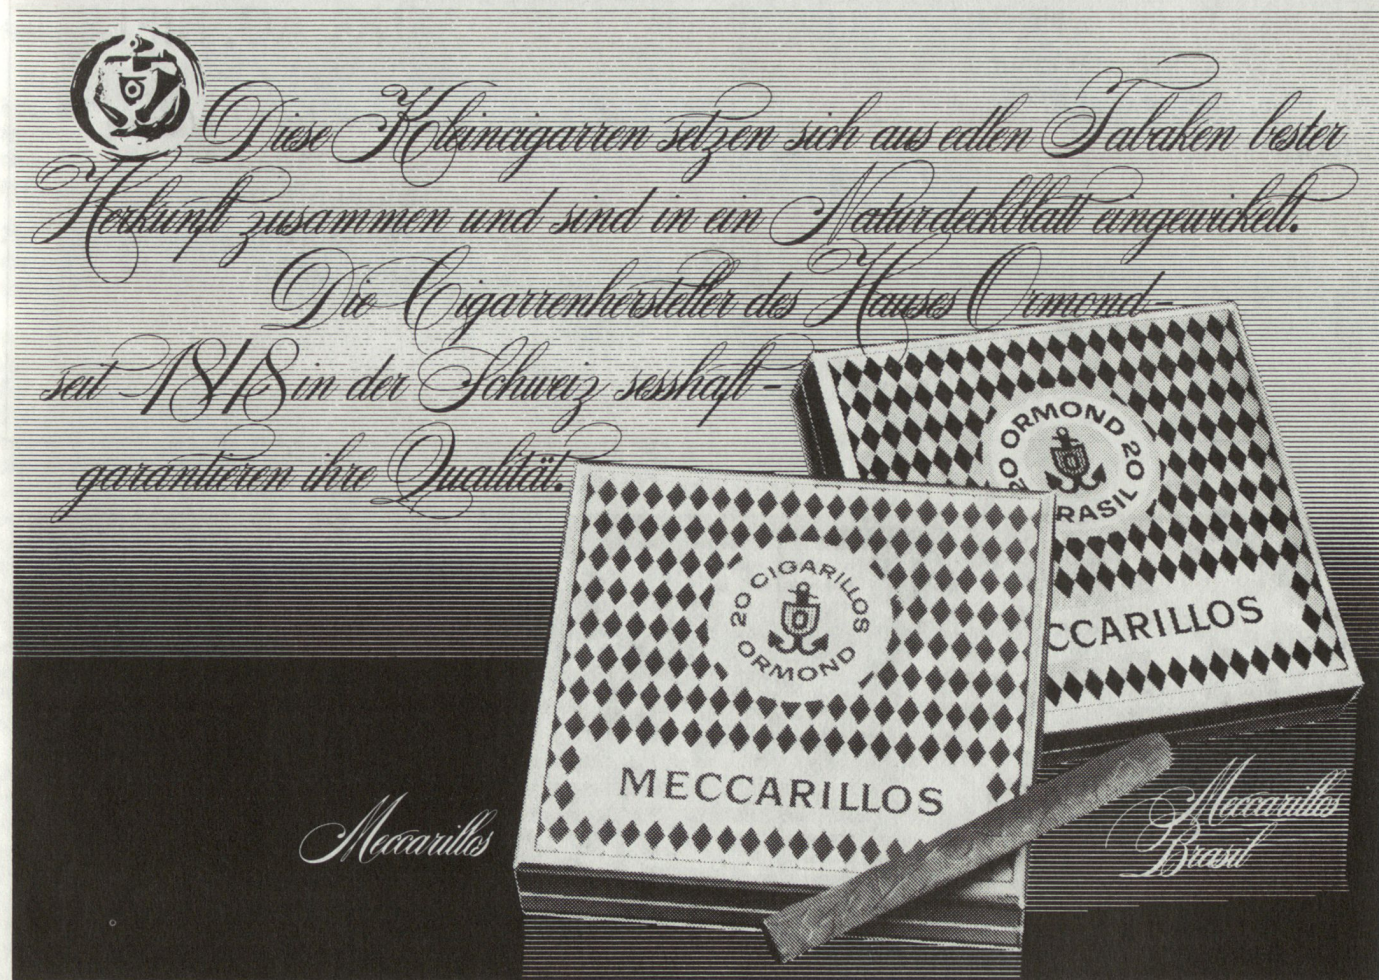 Diese Kleincigarren setzen sich aus edlen Tabaken bester
Herkunft zusammen und sind in ein Naturdeckblatt eingewickelt.
Die Cigarrenhersteller des Hauses Ormond-
seit 1848 in der Schweiz sesshaft -
garantieren ihre Qualität.
20 ORMOND 20
RASIL
CCARILLOS
20 CIGARILLOS
ORMOND
MECCARILLOS
Meccarillos
Meccarillos
Brasil